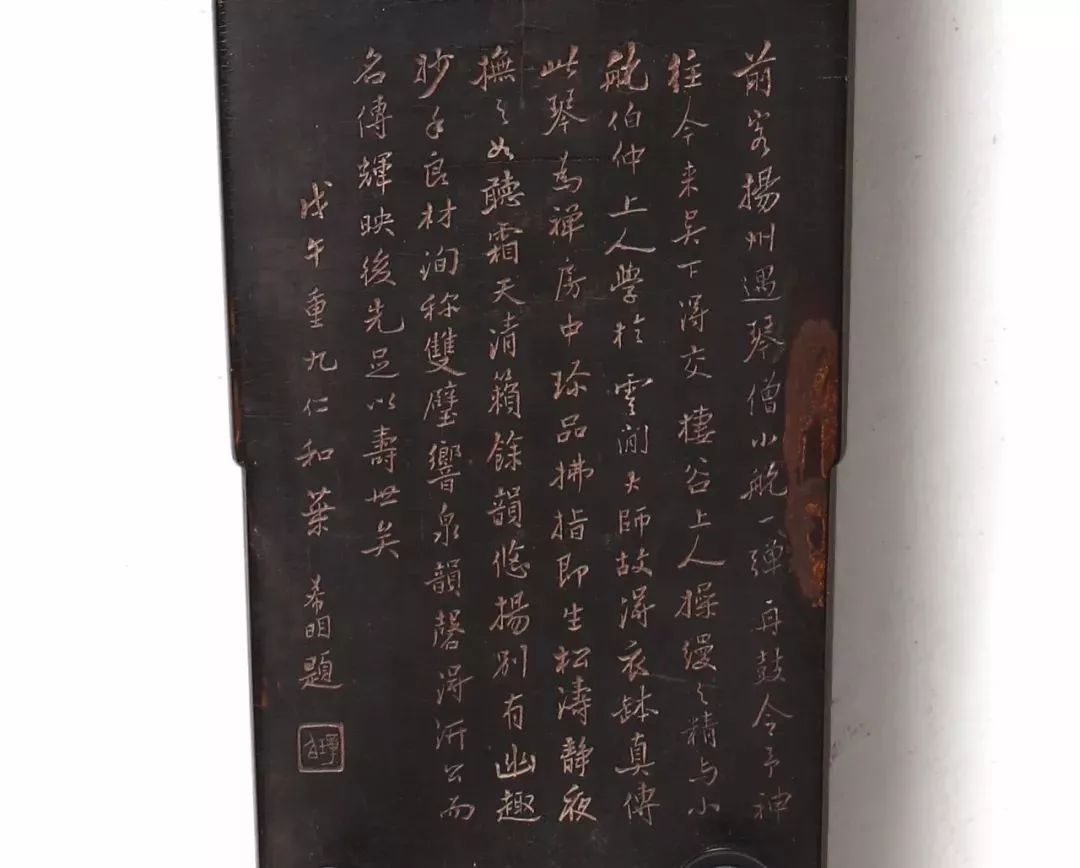 前客揚州遇琴僧小舫一彈再鼓令予神
往今来吴下得交棲谷上人操縵之精与小
舫伯仲上人學於雲閒大師故得衣鉢真傳
此琴為禅房中珎品拂指即生松濤静夜
撫之如聽霜天清籟餘韻悠揚別有幽趣
妙手良材洵称雙璧響泉韻磬得沂公而
名傳輝映後先足以壽世矣
戊午重九仁和葉希明題